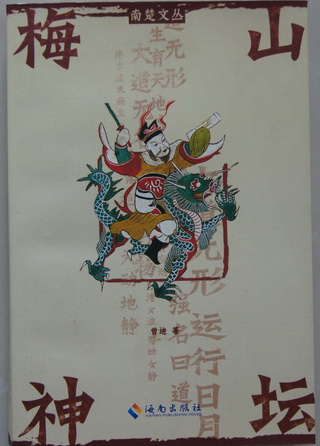 南楚文丛
梅 山
道无形
生育天地
大道无
无形运行日月
强名曰道
动地静
曾迪 著
神 坛
海南出版社
HAINAN PUBLISHING HOUSE